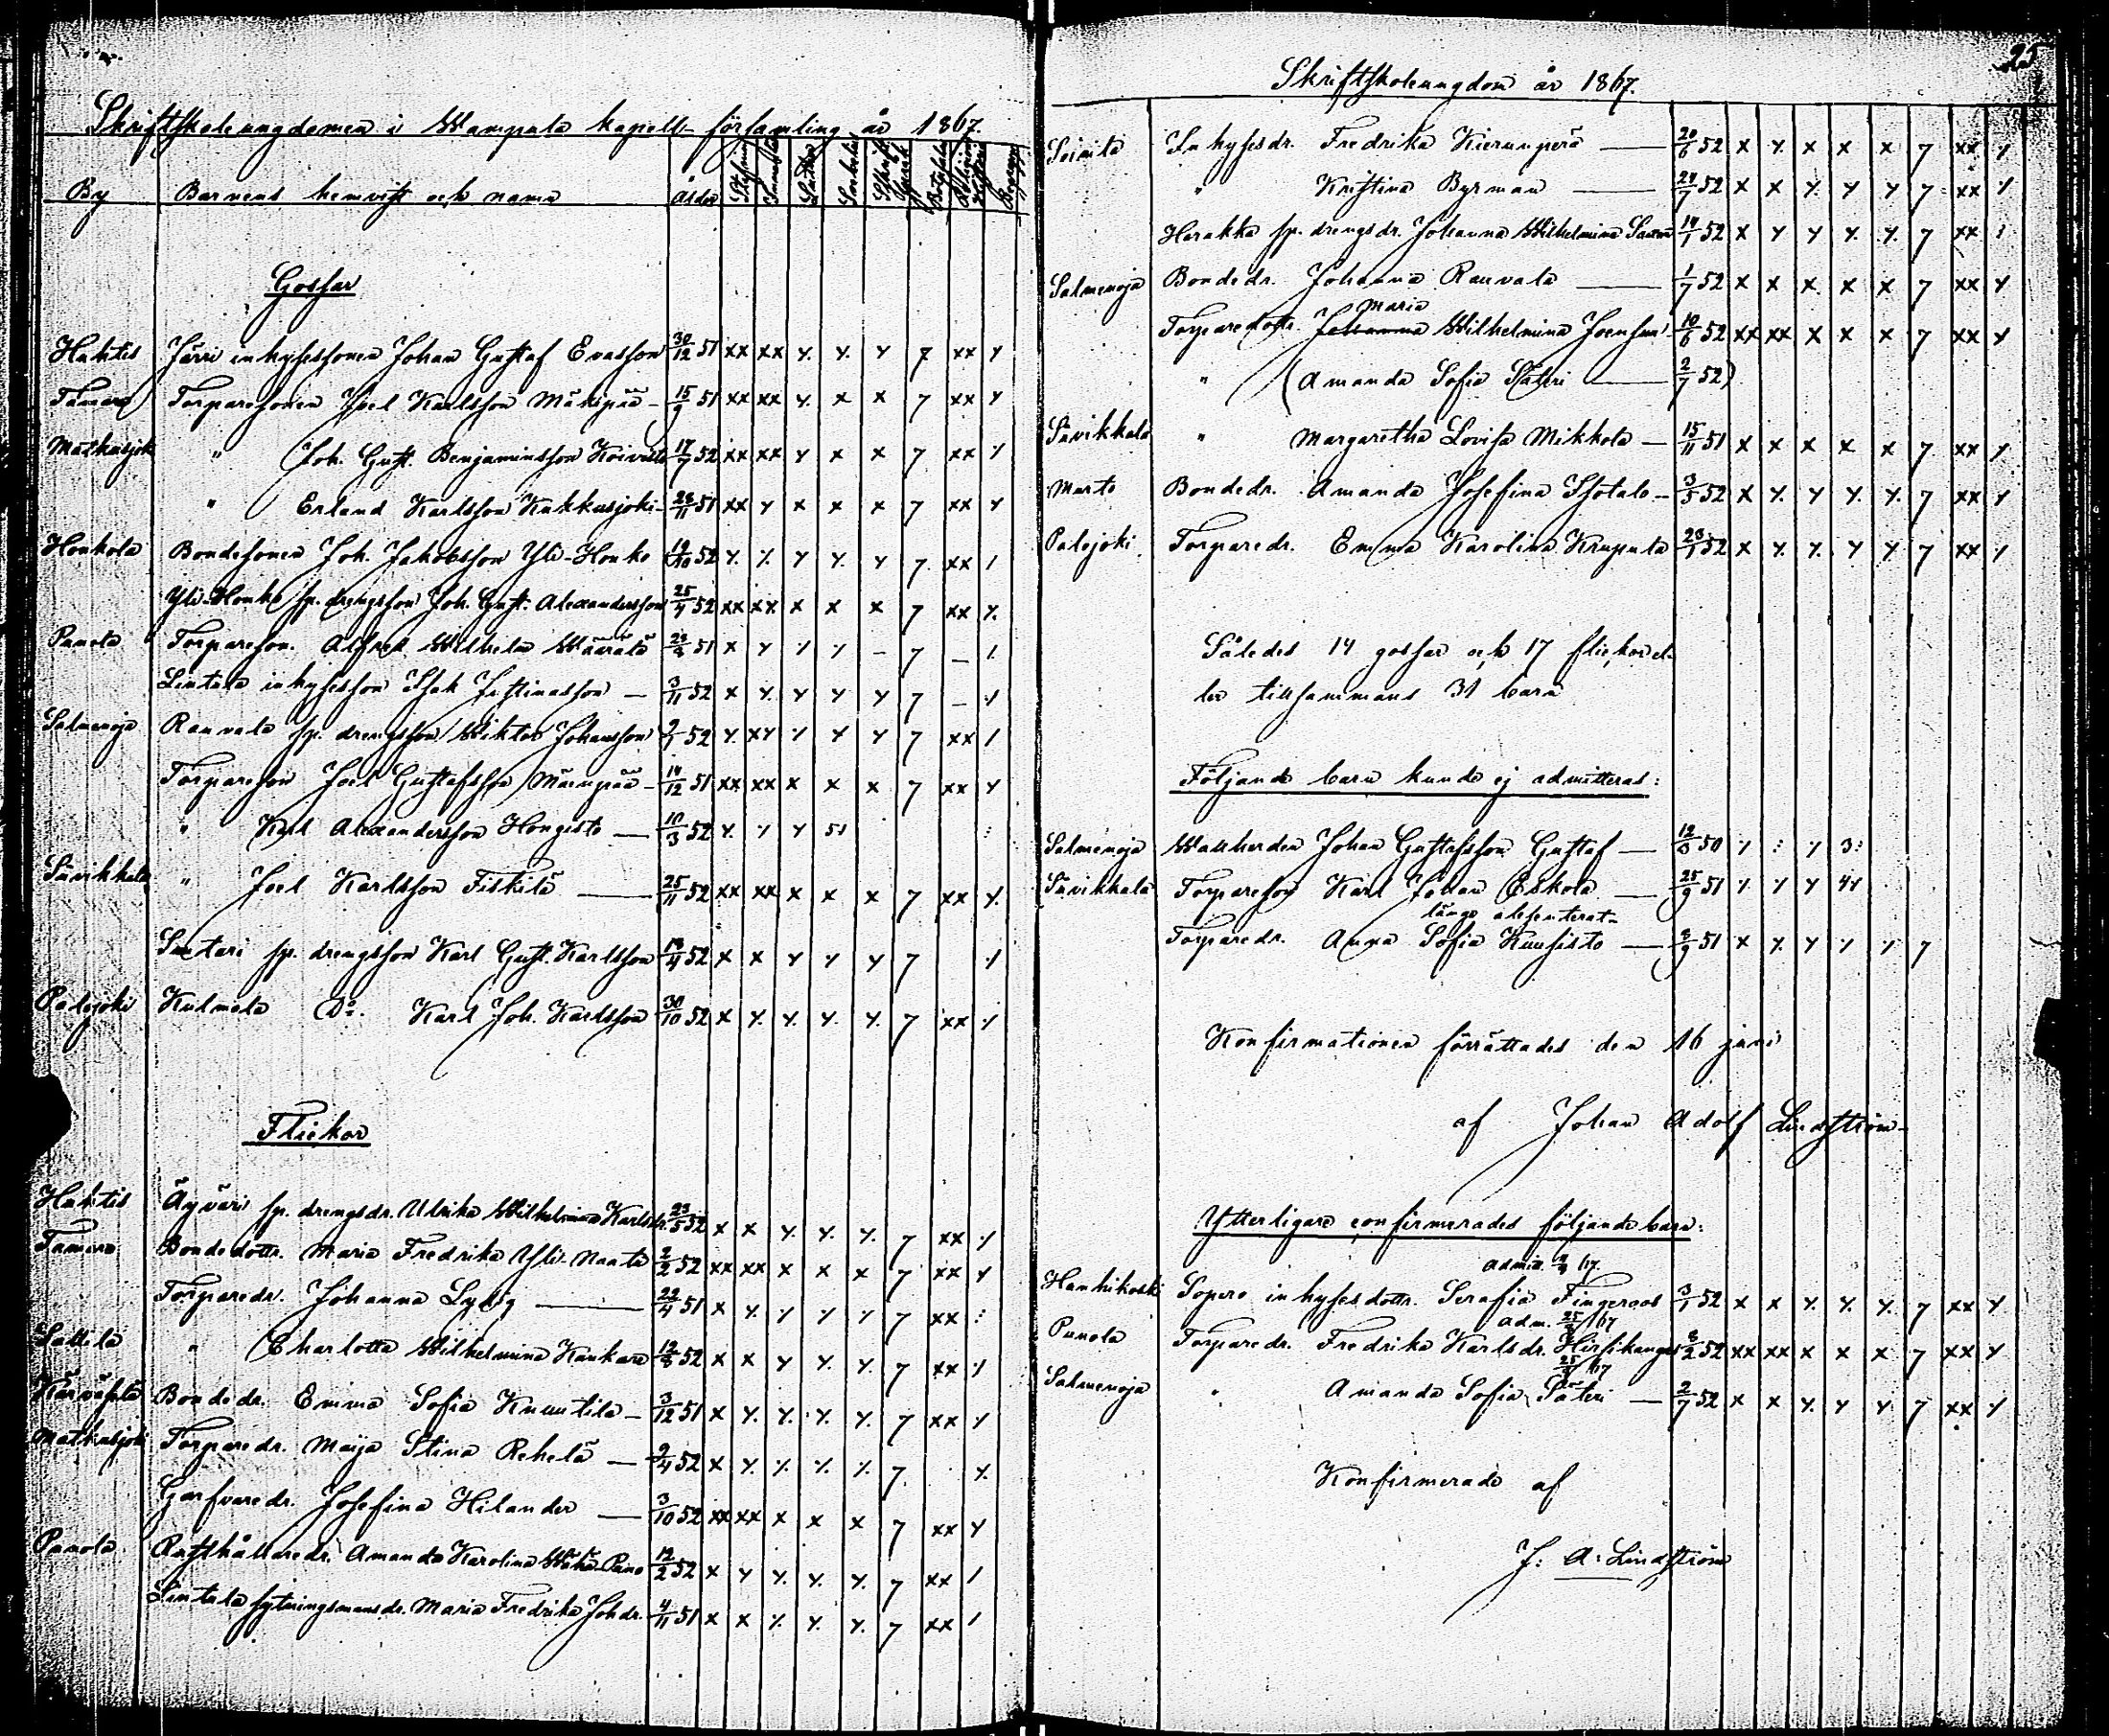 Skriftskoleungdomen i Wampula kapell-församling år 1867.
By Barnens hemvist och namn Ålder
Gossar
Huhtis Järvi inhysessonen Johan Gustaf Evasson 30/12 51 xx xx x x x 7 xx x
Tamare Torparesonen Joel Karlsson Mäkipää – 15/9 51 xx xx x x x 7 xx x
Matkusjoki " Joh. Gust. Benjaminsson Koivisto 17/7 52 xx xx x x x 7 xx x
" Erland Karlsson Kukkusjoki – 28/11 51 xx x x x x 7 xx x
Honkola Bondesonen Joh. Jakobsson Yli-Honko 19/10 52 x x x x x 7 xx /
Yli-Honko sp. drengsson Joh. Gust. Alexandersson 25/4 52 xx xx x x x 7 xx x
Punola Torpareson. Alfred Wilhelm Määrälä 51 x x x x – 7 – x
Lintula inhysesson Isak Justinasson – 3/11 52 x x x x x 7 – x
Salmenoja Rauvala sp. drengsson Wiktor Johansson 52 x xx x x x 7 xx /
Torpareson Joel Gustafsson Mäenpää – 14/12 51 xx xx x x x 7 xx x
" Karl Alexandersson Hongisto — 10/3 52 x x x
Sävikkala " Joel Karlsson Fiskilä — 25/11 52 xx xx x x x 7 xx x
Suutari sp. drengsson Karl Gust. Karlsson 52 x x x x x 7 x
Palojoki Kulmala Do. Karl Joh. Karlsson 30/10 52 x x x x x 7 xx x
Flickor
Huhtis Äyväri sp. drengsdr. Ulrika Wilhelmina Karlsdr. 23/5 52 x x x x x 7 xx x
Tamare Bondedottr. Maria Fredrika Yli-Naata 2/2 52 xx xx x x x 7 xx x
Torparedr. Johanna Lyssy — 22/4 51 x x x x x 7 xx :
Lattila " Charlotta Wilhelmina Kankare 12/8 52 x x x x x 7 xx x
Kärväselä Bondedr. Emma Sofia Knuutila – 3/12 51 x x x x x 7 xx x
Matkusjoki Torparedr. Maija Stina Rekelä — 9/4 52 x x x x x 7 x
Garfvaredr. Josefina Hilander — 3/10 52 xx xx x x x 7 xx x
Punola Rusthållaredr. Amanda Karolina Wähä-Puno 12/2 52 x x x x x 7 xx /
Lintula sytningsmansdr. Maria Fredrika Johdr. 4/11 51 x x x x x 7 xx /
25
Skriftskoleungdom år 1867.
Soinila Inhysesdr. Fredrika Kierunperä — 20/6 52 x x x x x 7 xx x
" Kristina Byrman — 24/7 52 x x x x x 7 xx x
Harakka sp. drengsdr. Johanna Wilhelmina 14/1 52 x x x x x 7 xx :
Salmenoja Bondedr. Johanna Rauvala — 1/7 52 x x x x x 7 xx x
Maria
Torparedottr. Johanna Wilhelmina Joensuu 10/6 52 xx xx x x x 7 xx x
" (Amanda Sofia Säteri — 2/7 52)
Sävikkala " Margaretha Lovisa Mikkola — 15/11 51 x x x x x 7 xx x
Marto Bondedr. Amanda Josefina Isotalo – 3/5 52 x x x x x 7 xx x
Palojoki Torparedr. Emma Karolina Krupula 23/1 52 x x x x x 7 xx x
Således 14 gossar och 17 flickor el-
ler tillsammans 31 barn
Följande barn kunde ej admitteras:
Salmenoja Wallherden Johan Gustafsson Gustaf — 50 x : x 3:
Sävikkala Torpareson Karl Johan Eskola — 25/9 51 x x x
länge absenterat
Torparedr. Anna Sofia Kuusisto — 51 x x x x x 7
Konfirmationen förrättades den 16 juni
af Johan Adolf Lindström
Ytterligare confirmerades följande barn:
Hanhikoski Sopero inhysesdottr. Serafia Fingerroos 3/1 52 x x x x x 7 xx x
adm. 67
Punola Torparedr. Fredrika Karlsdr. Hirsikangas 8/2 52 xx xx x x x 7 xx x
67
Salmenoja " Amanda Sofia Säteri — 2/7 52 x x x x x 7 xx x
Konfirmerade af
J. A. Lindström